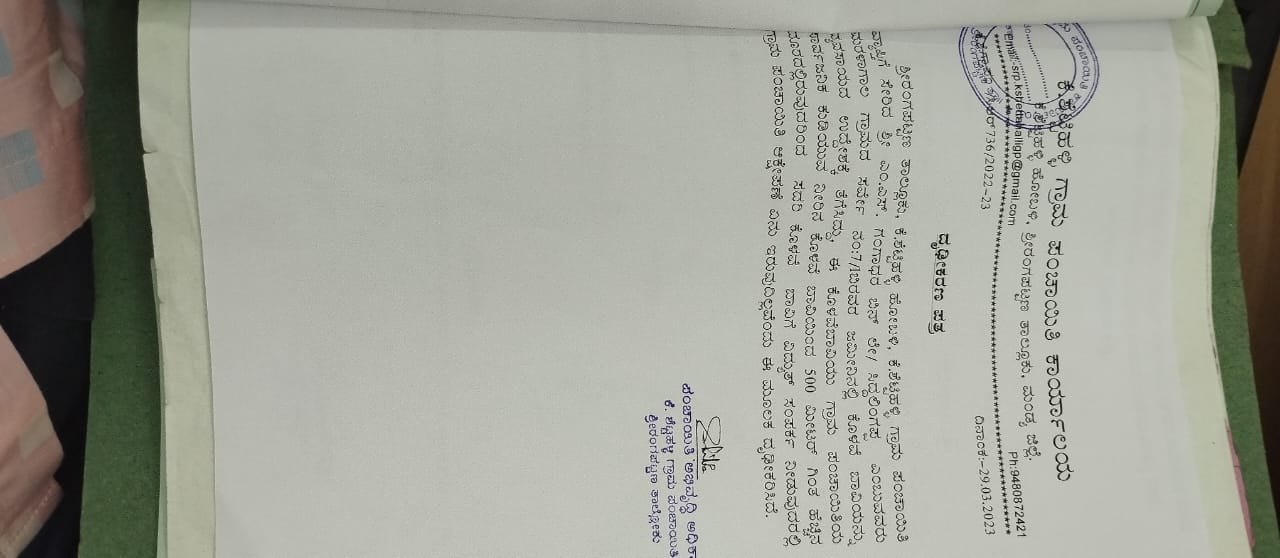 ಕೆ.ಶೆಟ್ಟಹಳ್ಳಿ ಗ್ರಾಮ ಪಂಚಾಯಿತಿ ಕಾರ್ಯಾಲಯ
ಕೆ.ಶೆಟ್ಟಹಳ್ಳಿ ಹೋಬಳಿ, ಶ್ರೀರಂಗಪಟ್ಟಣ ತಾಲ್ಲೂಕು, ಮಂಡ್ಯ ಜಿಲ್ಲೆ.
email:-srp.kshettahalligp@gmail.com Ph:9480872421
736/2022-23 ದಿನಾಂಕ:-29.03.2023
ದೃಢೀಕರಣ ಪತ್ರ
ಶ್ರೀರಂಗಪಟ್ಟಣ ತಾಲ್ಲೂಕು, ಕೆ.ಶೆಟ್ಟಹಳ್ಳಿ ಹೋಬಳಿ, ಕೆ.ಶೆಟ್ಟಹಳ್ಳಿ ಗ್ರಾಮ ಪಂಚಾಯಿತಿ
ವ್ಯಾಪ್ತಿಗೆ ಸೇರಿದ ಶ್ರೀ ಎಂ.ಎಸ್. ಗಂಗಾಧರ ಬಿನ್ ಲೇ/ ಸಿದ್ದಲಿಂಗಪ್ಪ ಎಂಬುವವರು
ಮರಳಾಗಾಲ ಗ್ರಾಮದ ಸರ್ವೆ ನಂ:7/1ಬಿರವರ ಜಮೀನಿನಲ್ಲಿ ಕೊಳವೆ ಬಾವಿಯನ್ನು
ವ್ಯವಸಾಯದ ಉದ್ದೇಶಕ್ಕೆ ತೆಗೆಸಿದ್ದು, ಈ ಕೊಳವೆಬಾವಿಯು ಗ್ರಾಮ ಪಂಚಾಯಿತಿಯ
ಸಾರ್ವಜನಿಕ ಕುಡಿಯುವ ನೀರಿನ ಕೊಳವೆ ಬಾವಿಯಿಂದ 500 ಮೀಟರ್ ಗಿಂತ ಹೆಚ್ಚಿನ
ದೂರದಲ್ಲಿರುವುದರಿಂದ ಸದರಿ ಕೊಳವೆ ಬಾವಿಗೆ ವಿದ್ಯುತ್ ಸಂಪರ್ಕ ನೀಡುವುದರಲ್ಲಿ
ಗ್ರಾಮ ಪಂಚಾಯಿತಿ ಆಕ್ಷೇಪಣೆ ಏನು ಇರುವುದಿಲ್ಲವೆಂದು ಈ ಮೂಲಕ ದೃಢೀಕರಿಸಿದೆ.
ಪಂಚಾಯಿತಿ ಅಭಿವೃದ್ಧಿ ಅಧಿಕಾ
ಕೆ. ಶೆಟ್ಟಹಳ್ಳಿ ಗ್ರಾಮ ಪಂಚಾಯಿತಿ
ಶ್ರೀರಂಗಪಟ್ಟಣ ತಾಲ್ಲೋಕು